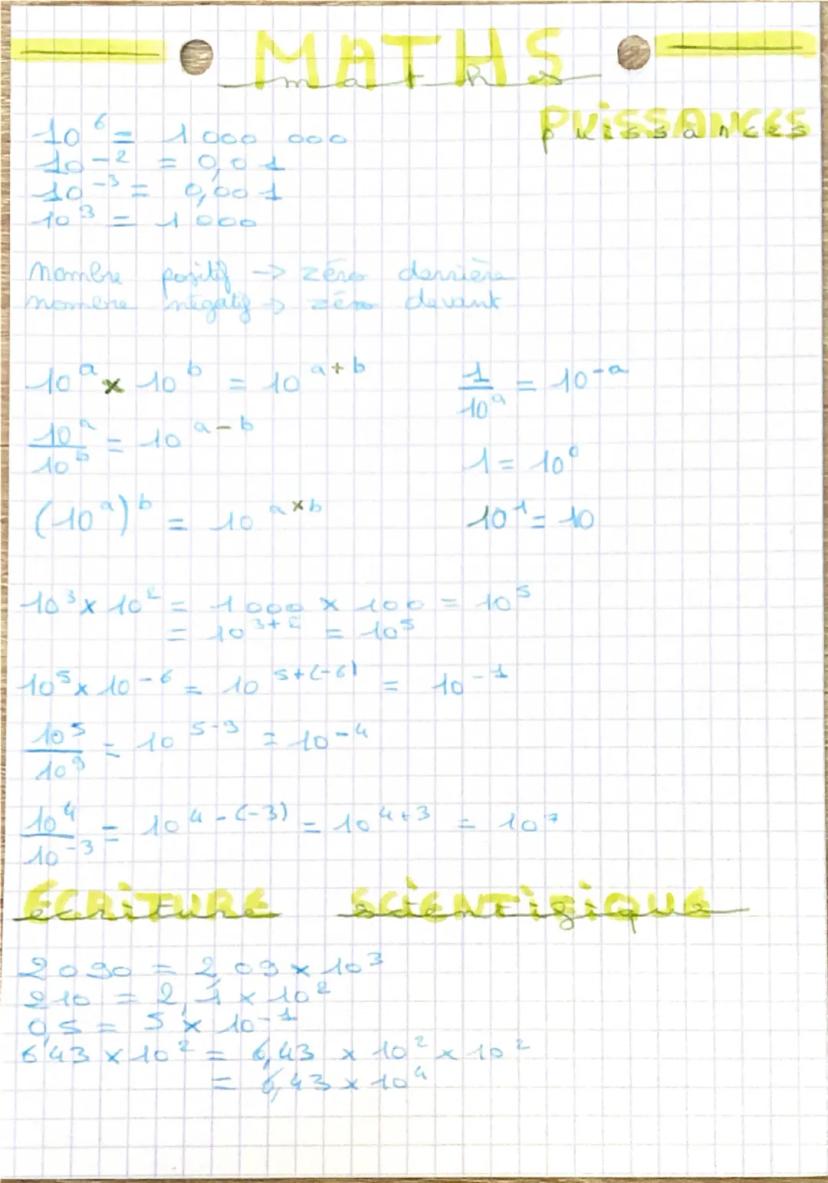 MATHS
maths
PUISSANCES
puissances
10⁶ = 1 000 000
10⁻² = 0,01
10⁻³ = 0,001
10³ = 1 000
nombre positif -> zéro derrière
nombre négatif -> zéro devant
10ᵃ × 10ᵇ = 10ᵃ⁺ᵇ
1/10ᵃ = 10⁻ᵃ
10ᵃ/10ᵇ = 10ᵃ⁻ᵇ
1 = 10⁰
(10ᵃ)ᵇ = 10ᵃˣᵇ
10¹ = 10
10³ × 10² = 1 000 × 100 = 10⁵
= 10³⁺² = 10⁵
10⁵ × 10⁻⁶ = 10⁵⁺⁽⁻⁶⁾ = 10⁻¹
10⁵/10⁹ = 10⁵⁻⁹ = 10⁻⁴
10⁴/10⁻³ = 10⁴⁻⁽⁻³⁾ = 10⁴⁺³ = 10⁷
ÉCRITURE SCIENTIFIQUE
écriture scientifique
2 090 = 2,09 × 10³
210 = 2,1 × 10²
0,5 = 5 × 10⁻¹
643 × 10² = 6,43 × 10² × 10²
= 6,43 × 10⁴